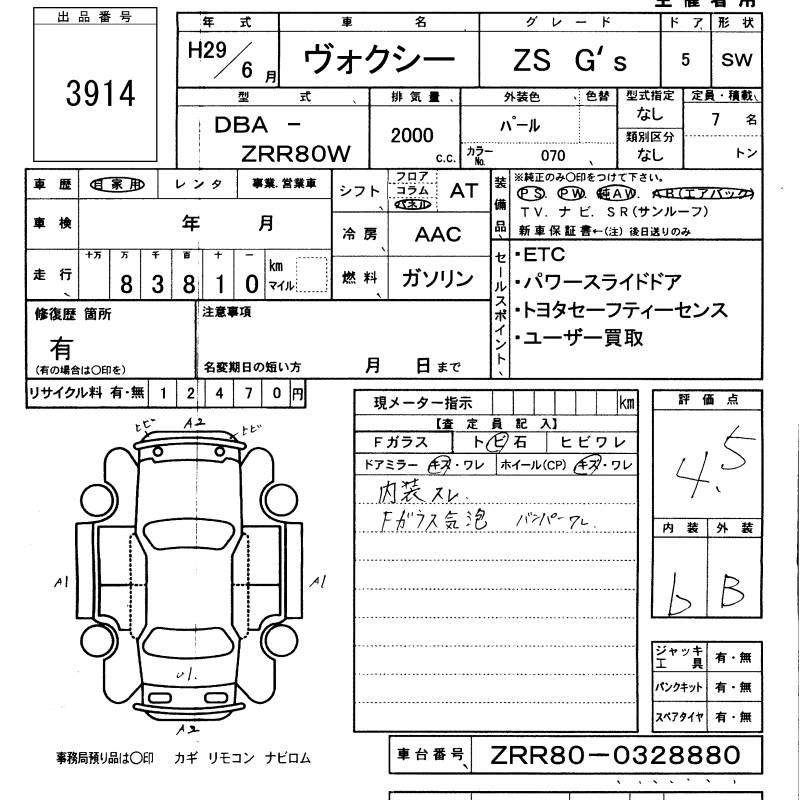 出品番号
3914
年式 車名 グレード ドア 形状
H29/6月 ヴォクシー ZS G's 5 SW
型式 排気量 外装色 色替 型式指定 定員・積載
DBA - ZRR80W 2000 c.c. パール なし 7 名
カラーNo. 070 類別区分 なし トン
車歴 自家用 レンタ 事業.営業車
シフト フロア コラム パネル AT
装備品 ※純正のみ○印をつけて下さい。
PS. PW. 純AW. AB(エアバック)
TV. ナビ. SR(サンルーフ)
新車保証書←(注) 後日送りのみ
車検 年 月
冷房 AAC
走行 十万 万 千 百 十 一
8 3 8 1 0 km マイル
燃料 ガソリン
セールスポイント
・ETC
・パワースライドドア
・トヨタセーフティーセンス
・ユーザー買取
修復歴 箇所
有
(有の場合は○印を)
注意事項
名変期日の短い方 月 日まで
リサイクル料 有・無 1 2 4 7 0 円
現メーター指示 km
【査定員記入】
Fガラス トビ石 ヒビワレ
ドアミラー キズ・ワレ ホイール(CP) キズ・ワレ
内装スレ.
Fガラス気泡 バンパーワレ.
評価点
4.5
内装 外装
b B
トビ A2 トビ
A1 A1
U1.
A2
ジャッキ工具 有・無
パンクキット 有・無
スペアタイヤ 有・無
事務局預り品は○印 カギ リモコン ナビロム
車台番号 ZRR80-0328880